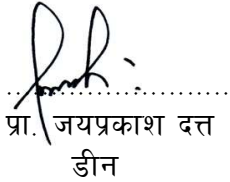 प्रा. जयप्रकाश दत्त
डीन